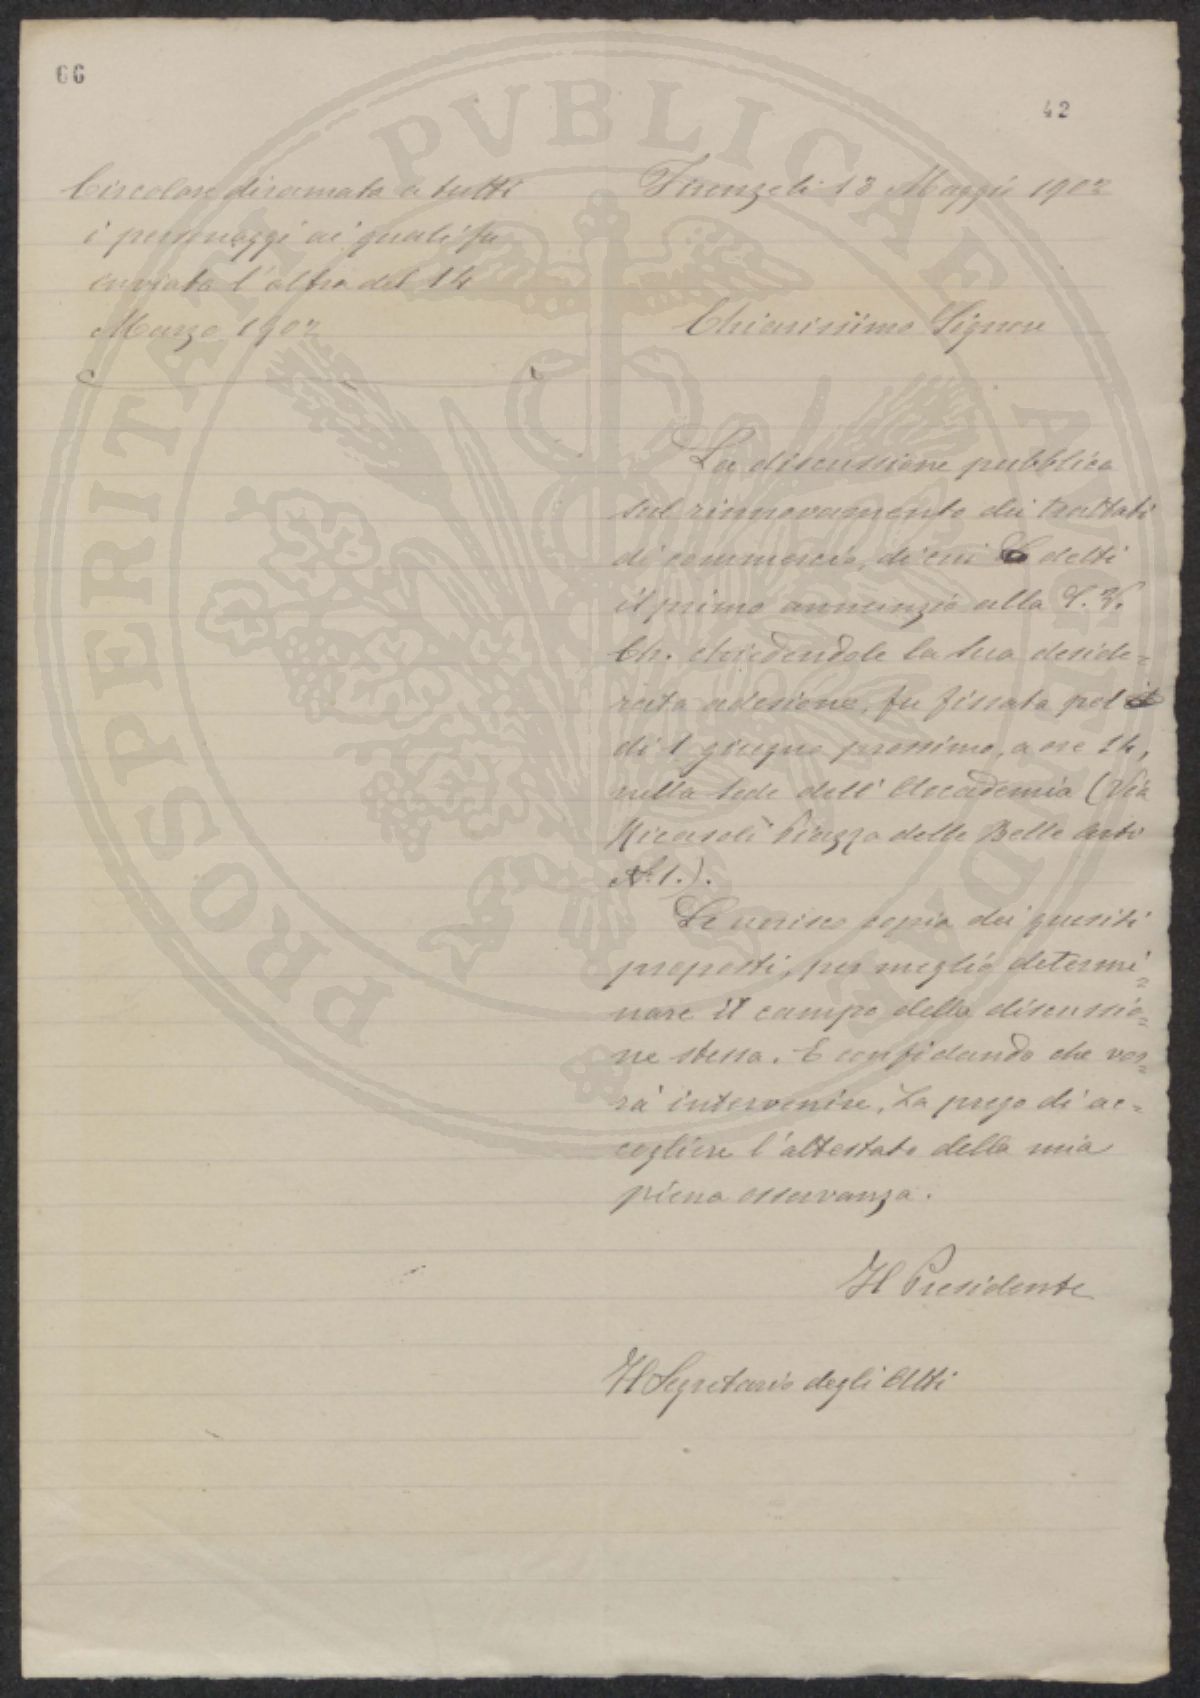 66
42
Circolare diramata a tutti
i personaggi ai quali fu
inviata l'altra del 14
Marzo 1902
Firenze li 13 Maggio 1902
Chiarissimo Signore
La discussione pubblica
sul rinnovamento dei trattati
di commercio, di cui detti
il primo annunzio alla S. V.
Ch. chiedendole la Sua deside=
rata adesione, fu fissata pel
dì 1 giugno prossimo, a ore 14,
nella Sede dell'Accademia (Via
Ricasoli Piazza delle Belle Arti
N.º 1.).
Le unisco copia dei quesiti
proposti, per meglio determi=
nare il campo della discussio=
ne stessa. E confidando che vor=
rà intervenire, La prego di ac=
cogliere l'attestato della mia
piena osservanza.
Il Presidente
Il Segretario degli Atti
PROSPERITATI PVBLICAE AVGENDAE